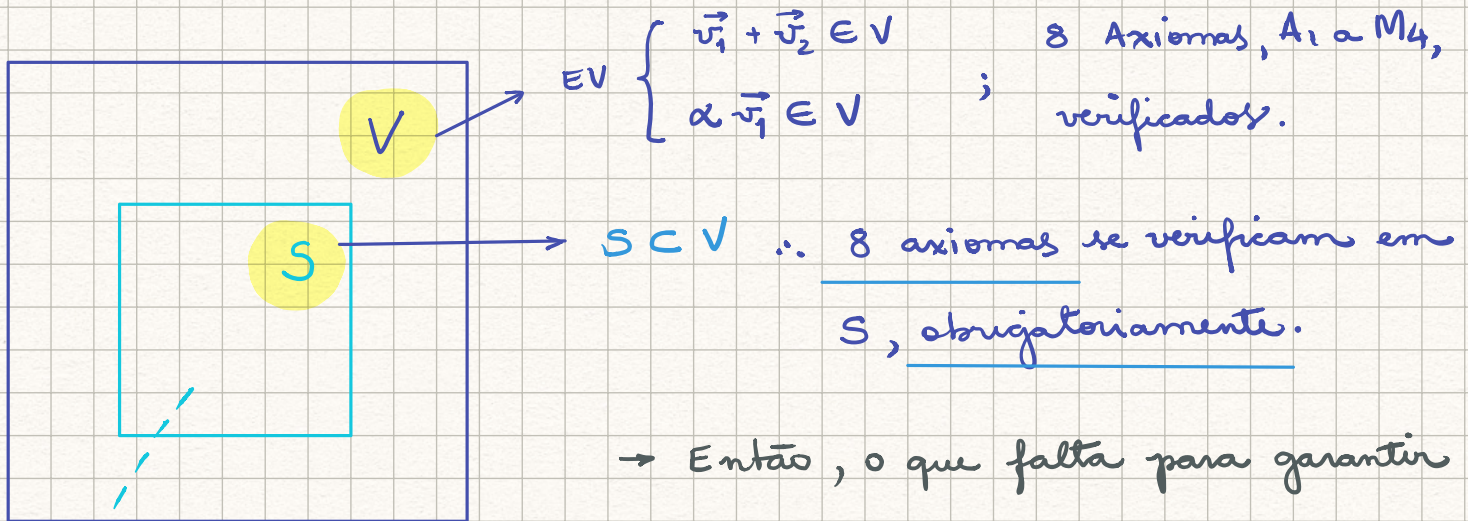 EV { v₁ + v₂ ∈ V ; 8 Axiomas, A1 a M4,
α v₁ ∈ V verificados.
V
S
S ⊂ V ∴ 8 axiomas se verificam em
S, obrigatoriamente.
→ Então, o que falta para garantir